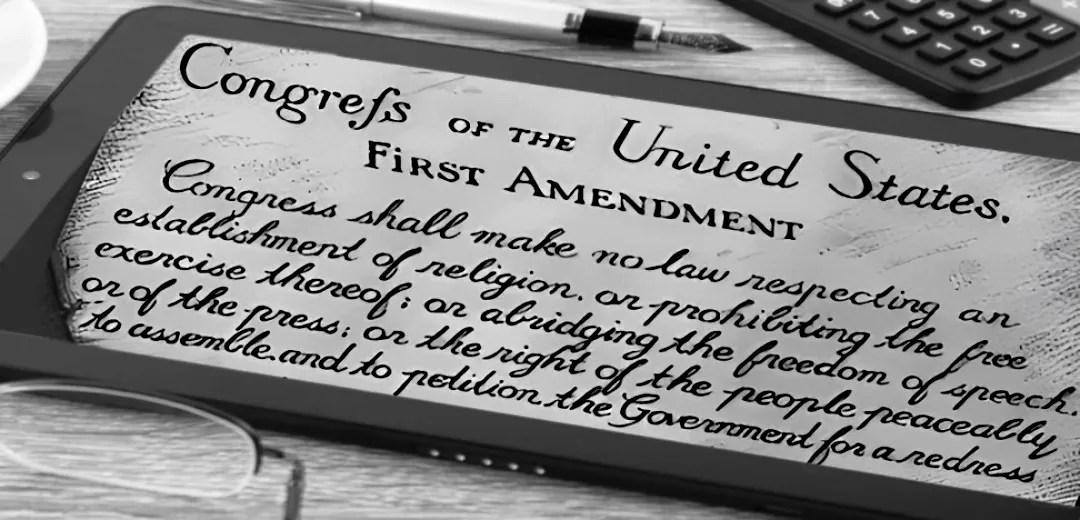 Congreſs OF THE United States.
FIRST AMENDMENT
Congress shall make no law respecting an
establishment of religion, or prohibiting the free
exercise thereof; or abridging the freedom of speech,
or of the press; or the right of the people peaceably
to assemble, and to petition the Government for a redress
7
4 5
1 2 3
0 . =